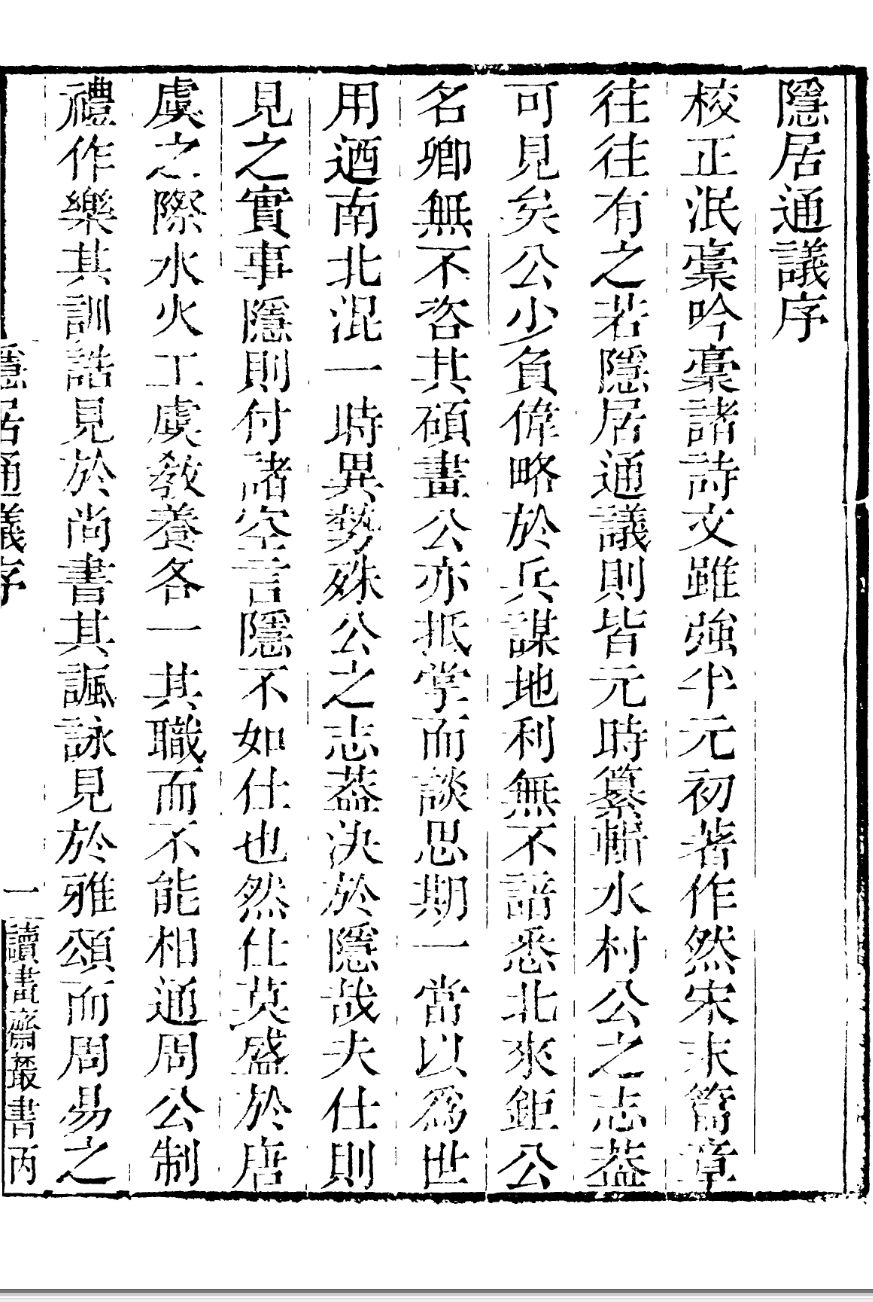 隱居通議序
校正泯藁吟藁諸詩文雖強半元初著作然宋末篇章
往往有之若隱居通議則皆元時纂輯水村公之志葢
可見矣公少負偉略於兵謀地利無不諳悉北來鉅公
名卿無不咨其碩畫公亦抵掌而談思期一當以為世
用迺南北混一時異勢殊公之志葢決於隱哉夫仕則
見之實事隱則付諸空言隱不如仕也然仕莫盛於唐
虞之際水火工虞教養各一其職而不能相通周公制
禮作樂其訓誥見於尚書其諷詠見於雅頌而周易之
隱居通議序
一
讀畫齋叢書丙